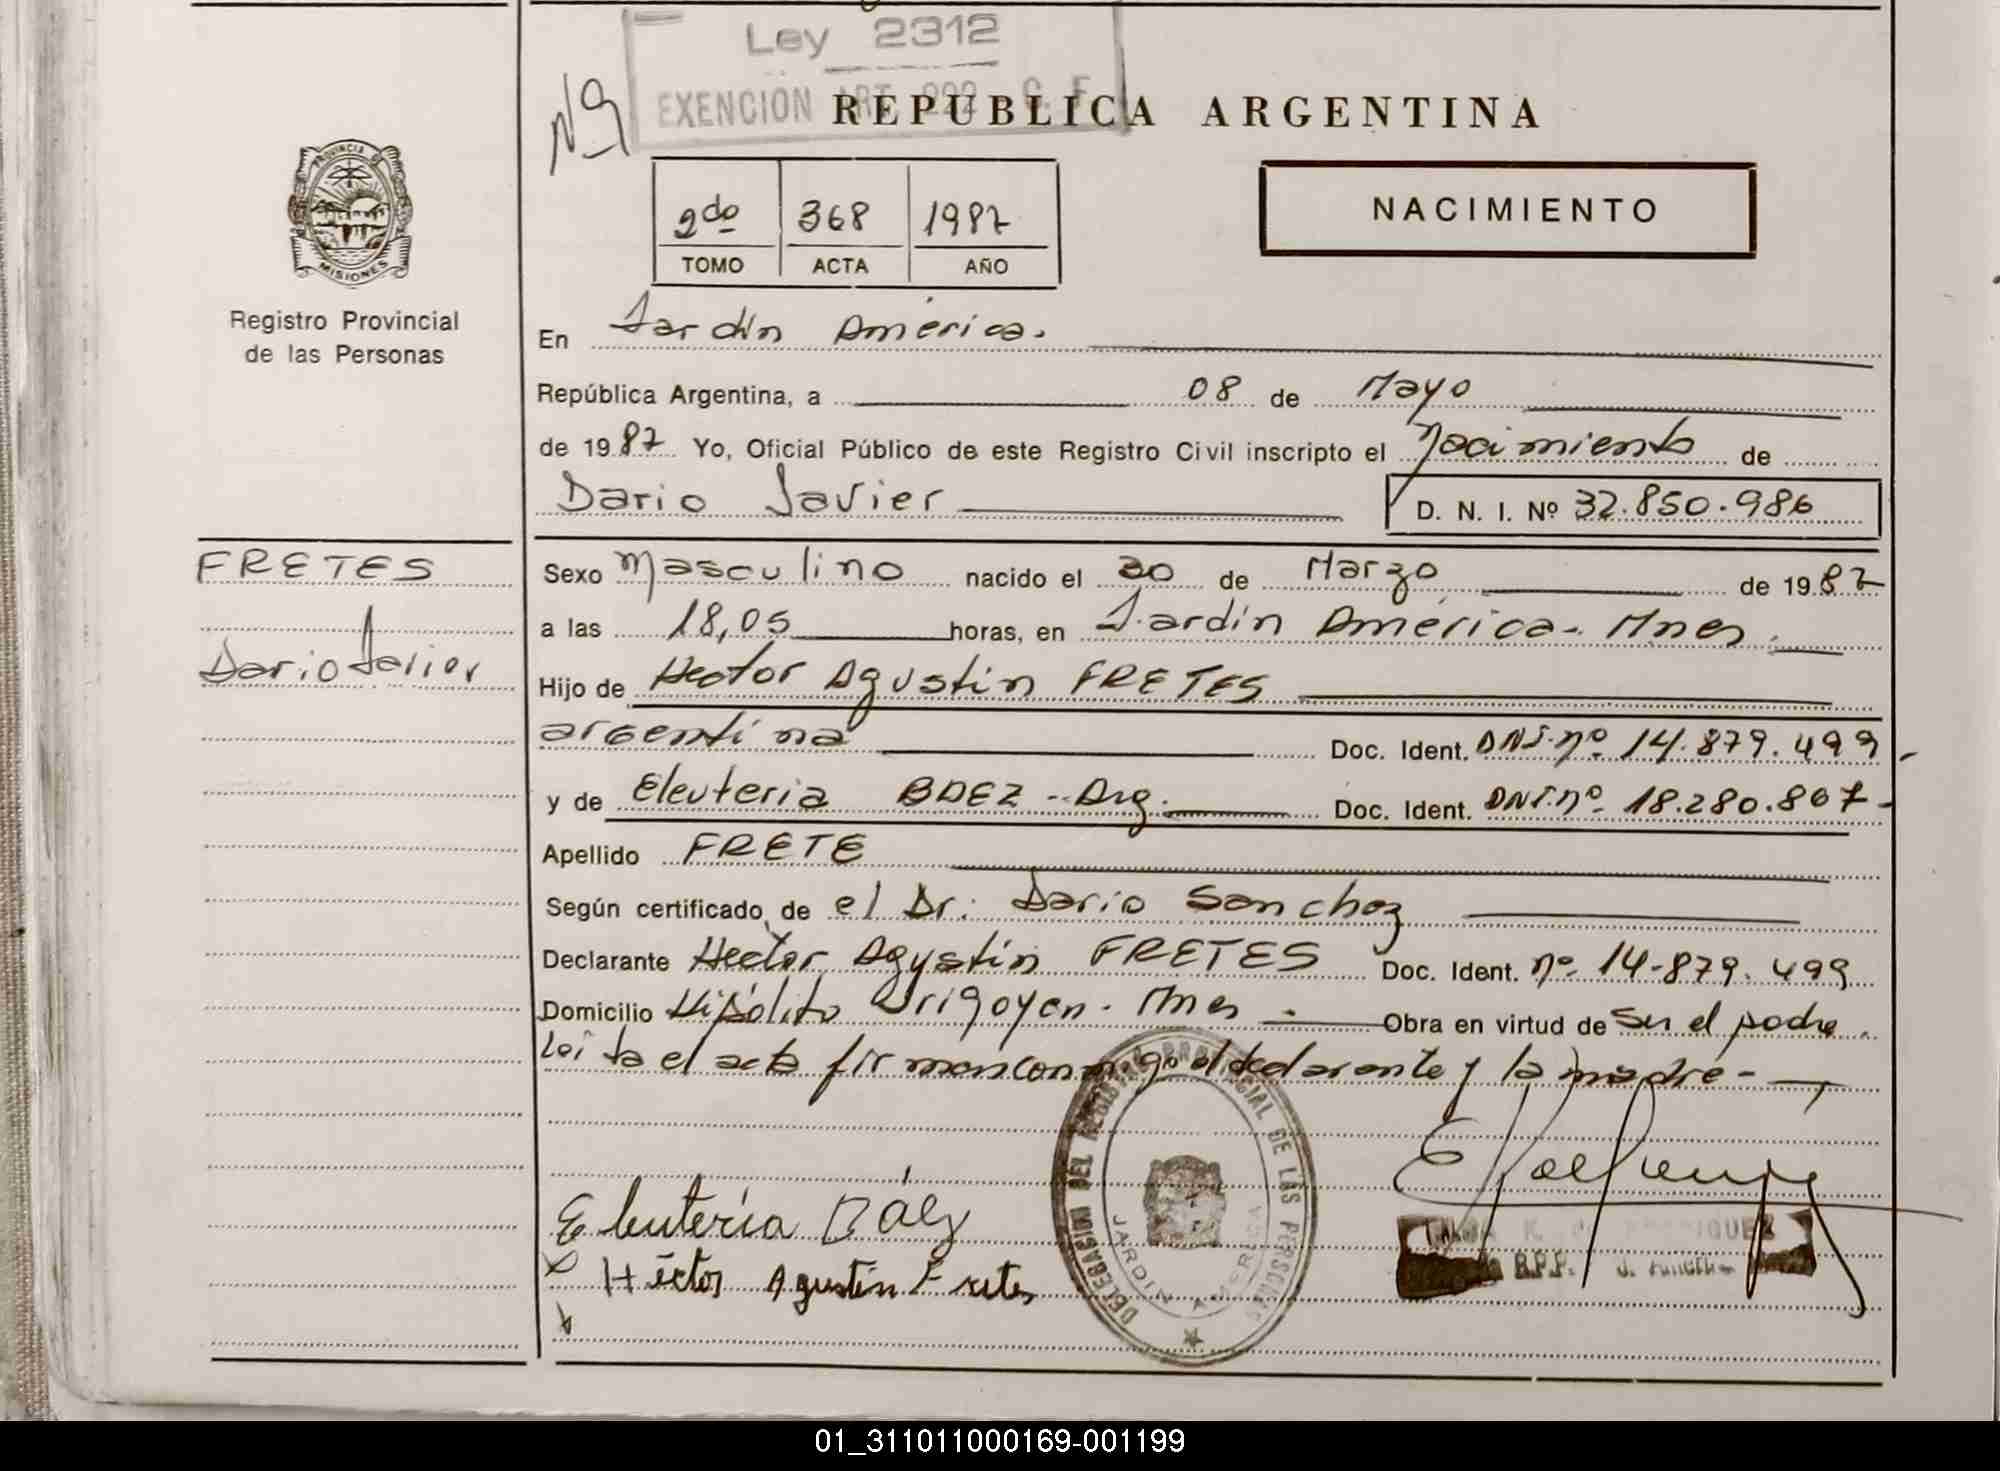 Ley 2312
EXENCION ART 222 C. F.
Nº
REPUBLICA ARGENTINA
PROVINCIA DE
MISIONES
Registro Provincial
de las Personas
2do 368 1987
TOMO ACTA AÑO
NACIMIENTO
En Jardín América.
República Argentina, a 08 de Mayo
de 1987 Yo, Oficial Público de este Registro Civil inscripto el Nacimiento de
Dario Javier
D. N. I. Nº 32.850.986
FRETES
Dario Javier
Sexo Masculino nacido el 30 de Marzo de 1987
a las 18,05 horas, en Jardín América - Mnes.
Hijo de Hector Agustín FRETES
argentina Doc. Ident. DNI. nº 14.879.499 -
y de Eleuteria BAEZ - Arg. Doc. Ident. DNI. nº 18.280.867 -
Apellido FRETE
Según certificado de el Dr. Dario Sanchez
Declarante Hector Agustín FRETES Doc. Ident. nº 14-879.499
Domicilio Hipólito Yrigoyen - Mnes - Obra en virtud de ser el padre.
Leída el acta firman conmigo el declarante y la madre -
DELEGACION DEL REGISTRO PROVINCIAL DE LAS PERSONAS
JARDIN AMERICA
Eleuteria Báez
Héctor Agustín Fretes
R.P.P.
01_311011000169-001199